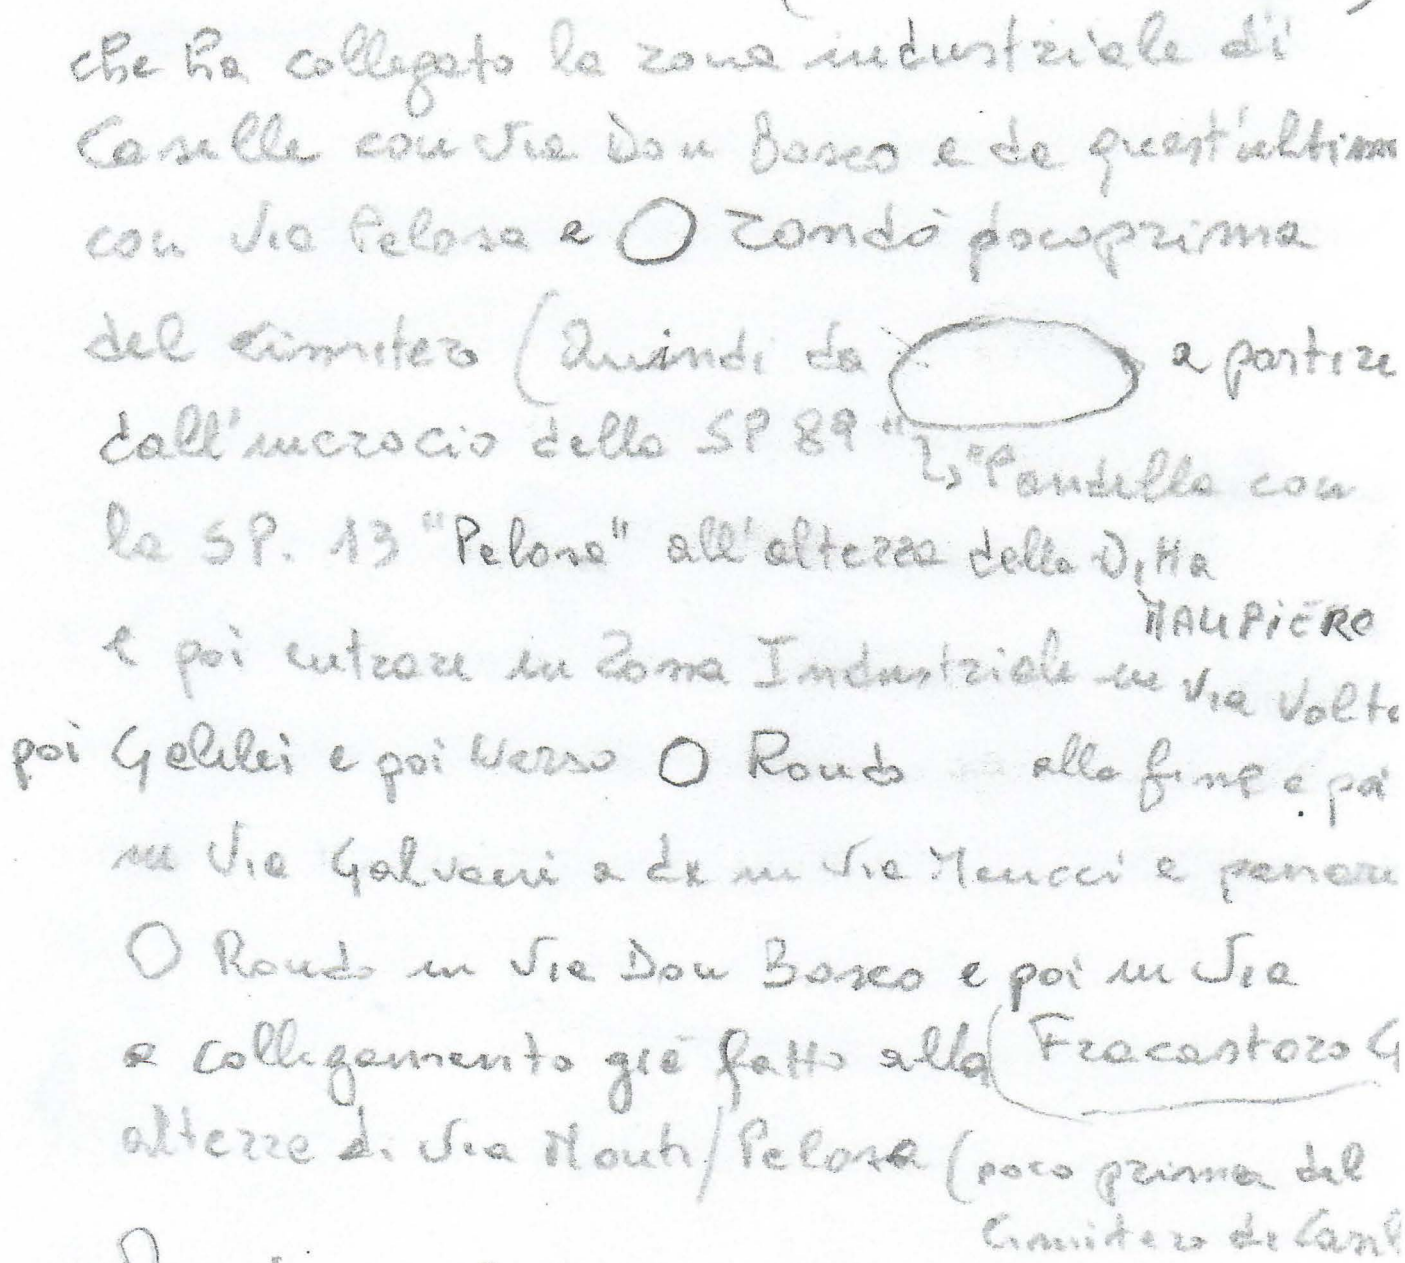 che ha collegato la zona industriale di
Caselle con Via Don Bosco e da quest'ultim
con Via Pelosa e O rondò poco prima
del cimitero (Quindi da a partire
dall'incrocio della SP 89 "
"Pandella con
la SP. 13 "Pelosa" all'altezza della Ditta
MAUPIERO
e poi entrare in Zona Industriale in Via Volta
poi Galilei e poi verso O Rondò alla fine e poi
in Via Galvani a dx in Via Meucci e passare
O Rondò in Via Don Bosco e poi in Via
Fracastoro G
e collegamento già fatto alla
altezza di Via Monti/Pelosa (poco prima del
Cimitero di Casel